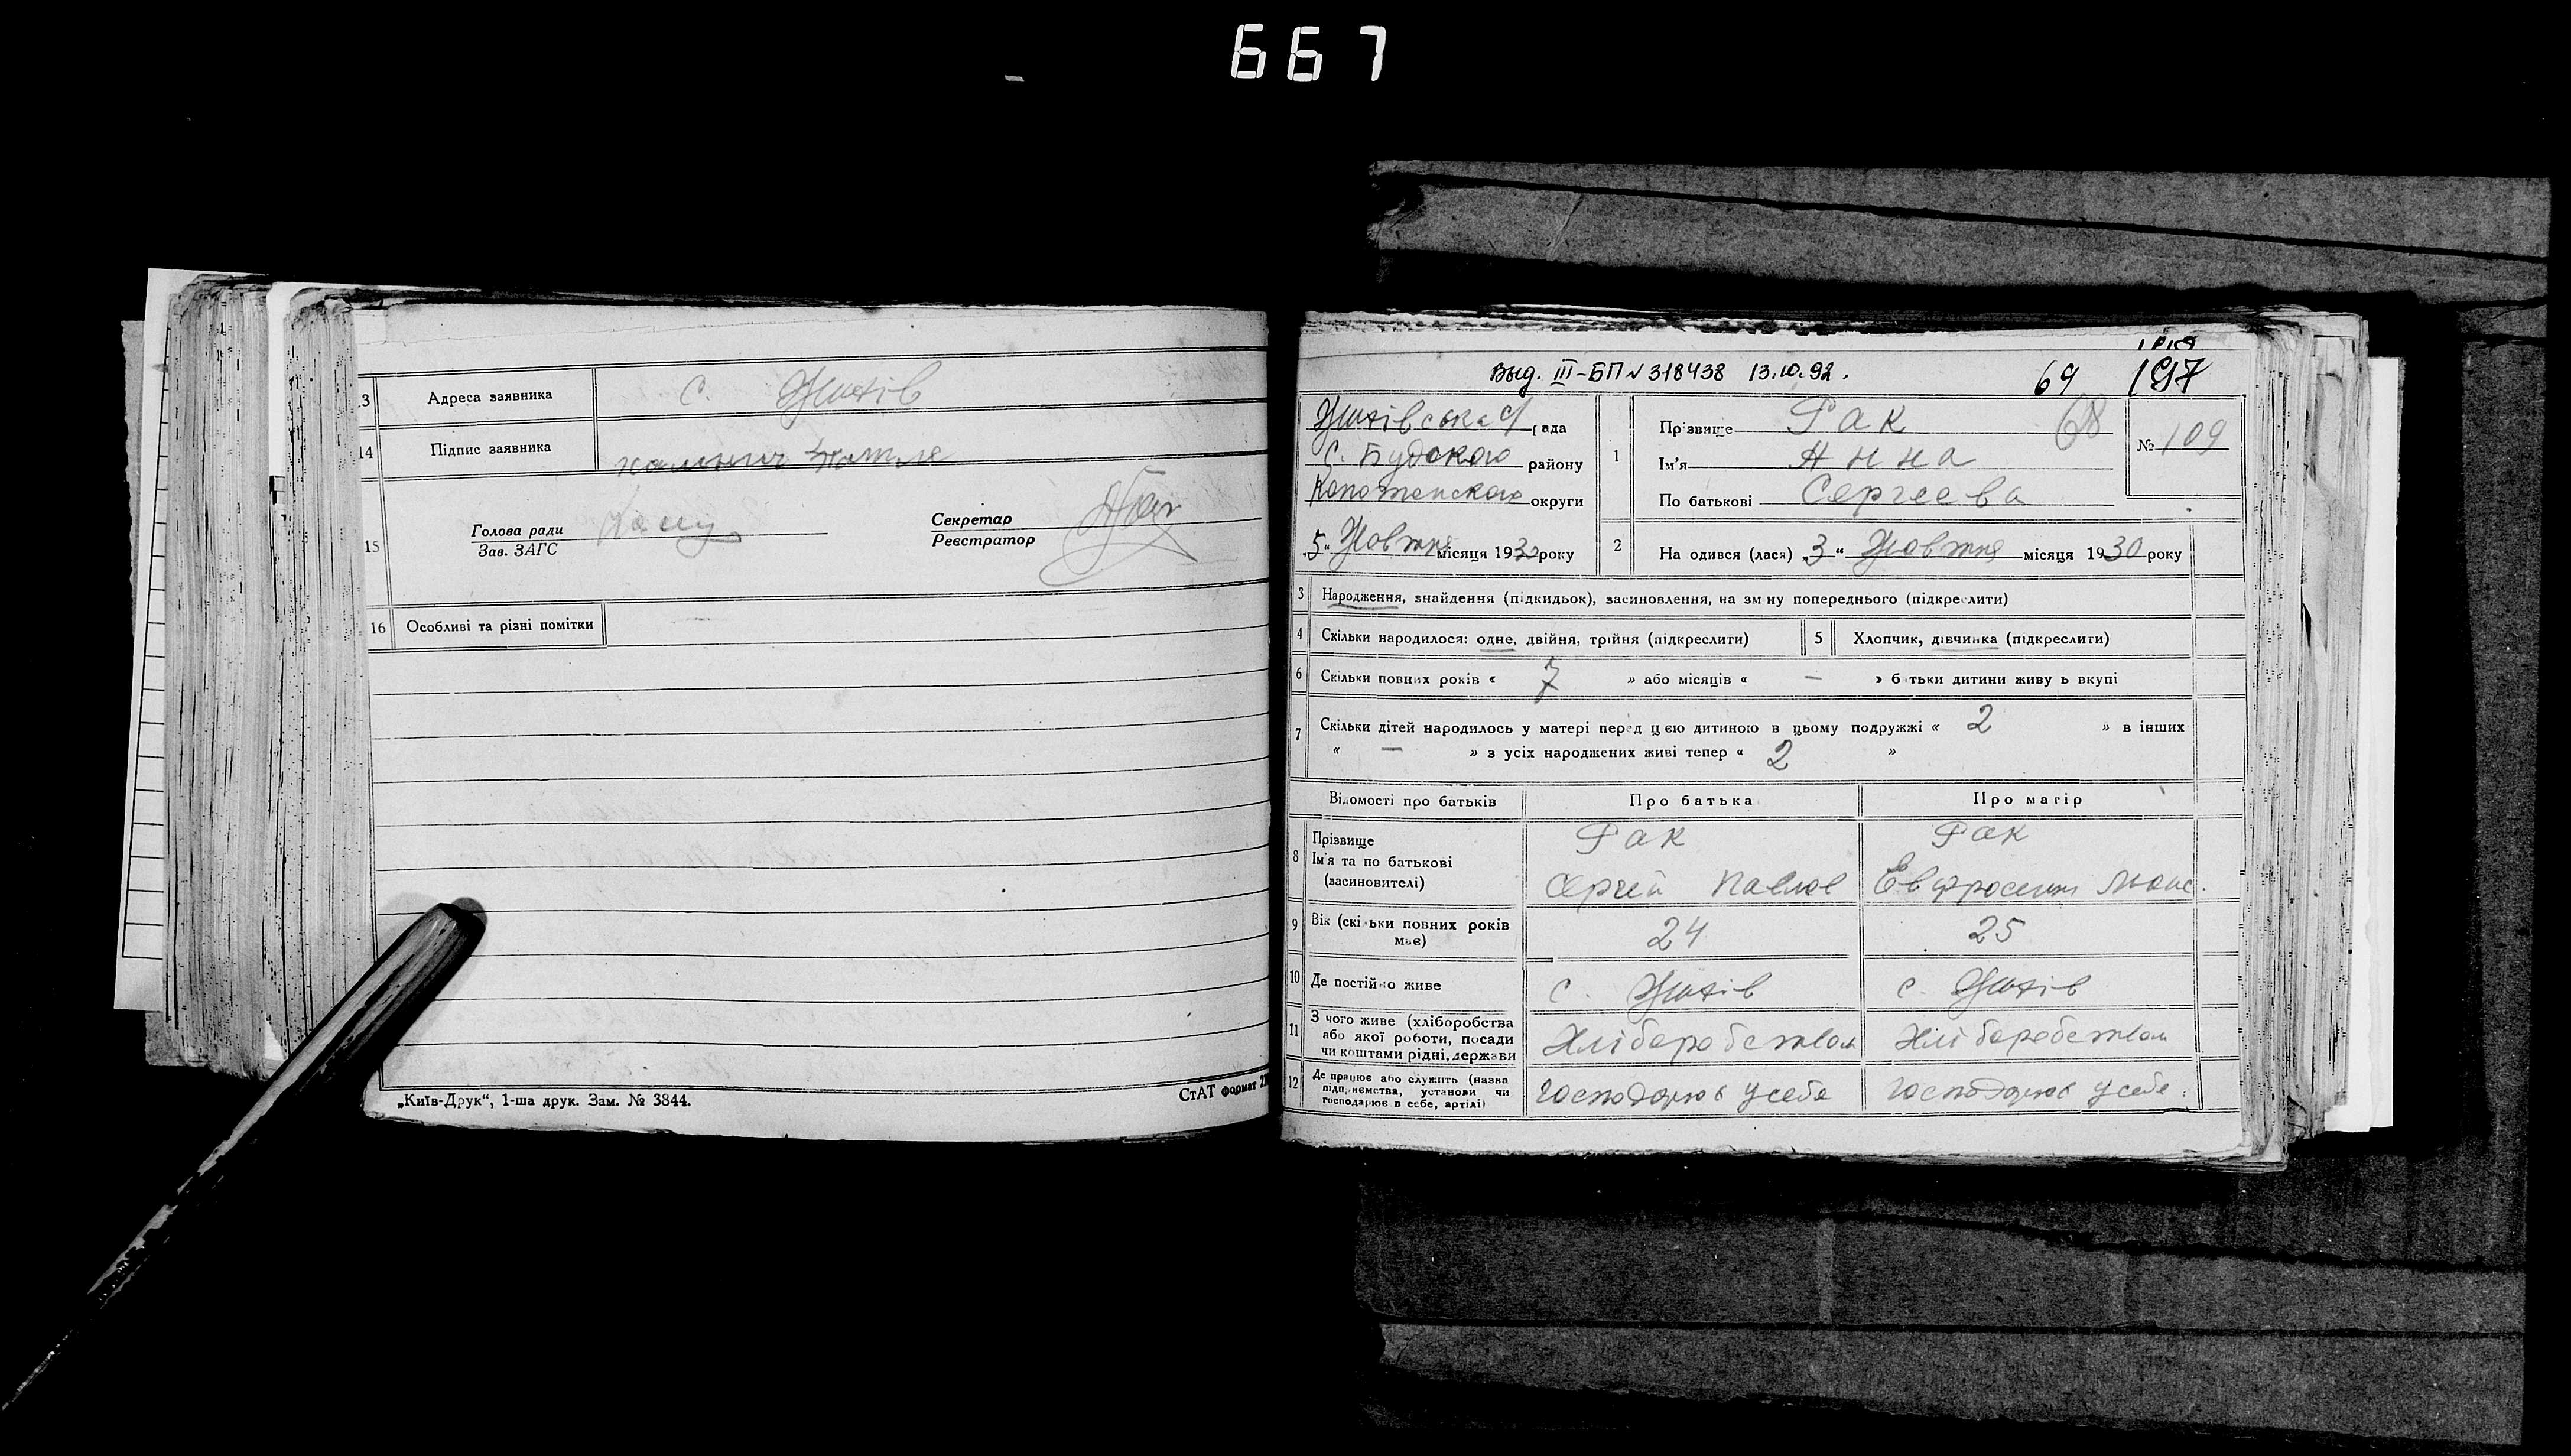 667
13 Адреса заявника с. Жихів
14 Підпис заявника
15 Голова ради
Зав. ЗАГС
Секретар
Реєстратор
16 Особливі та різні помітки
„Київ-Друк“, 1-ша друк. Зам. № 3844.
СтАТ формат
Выд. III-БП № 318438 13.10.92.
69 197
Жихівська с/рада
С. Будского району
Конотопського округи
„5“ Жовтня місяця 1930 року
1 Прізвище Рак 68
Ім'я Анна
По батькові Сергеева
№ 109
2 На одився (лася) „3“ Жовтня місяця 1930 року
3 Народження, знайдення (підкидьок), засиновлення, на зм ну попереднього (підкреслити)
4 Скільки народилося: одне, двійня, трійня (підкреслити)
5 Хлопчик, дівчинка (підкреслити)
6 Скільки повних років « 7 » або місяців « — » батьки дитини живу ь вкупі
7 Скільки дітей народилось у матері перед цією дитиною в цьому подружжі « 2 » в інших
« — » з усіх народжених живі тепер « 2 »
Відомості про батьків Про батька Про матір
8 Прізвище
Ім'я та по батькові
(засиновителі)
Рак
Сергей Павлов
Рак
Евфросения
9 Вік (скільки повних років
має)
24 25
10 Де постійно живе с. Жихів с. Жихів
11 З чого живе (хліборобства
або якої роботи, посади
чи коштами рідні, держави
Хліборобством Хліборобством
12 Де працює або служить (назва
підприємства, установи чи
господарює в себе, артілі)
Господарює у себе Господарює у себе